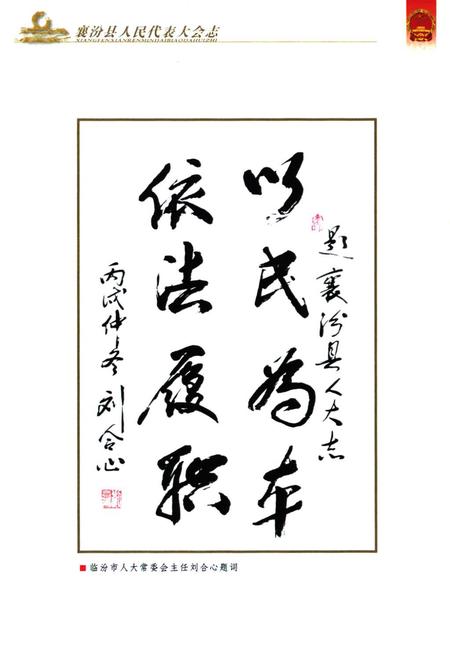 襄汾县人民代表大会志
XIANGFENXIANRENMINDAIBIAODAHUIZHI
题襄汾县人大志
以民为本
依法履职
丙戌仲冬 刘合心
■ 临汾市人大常委会主任刘合心题词